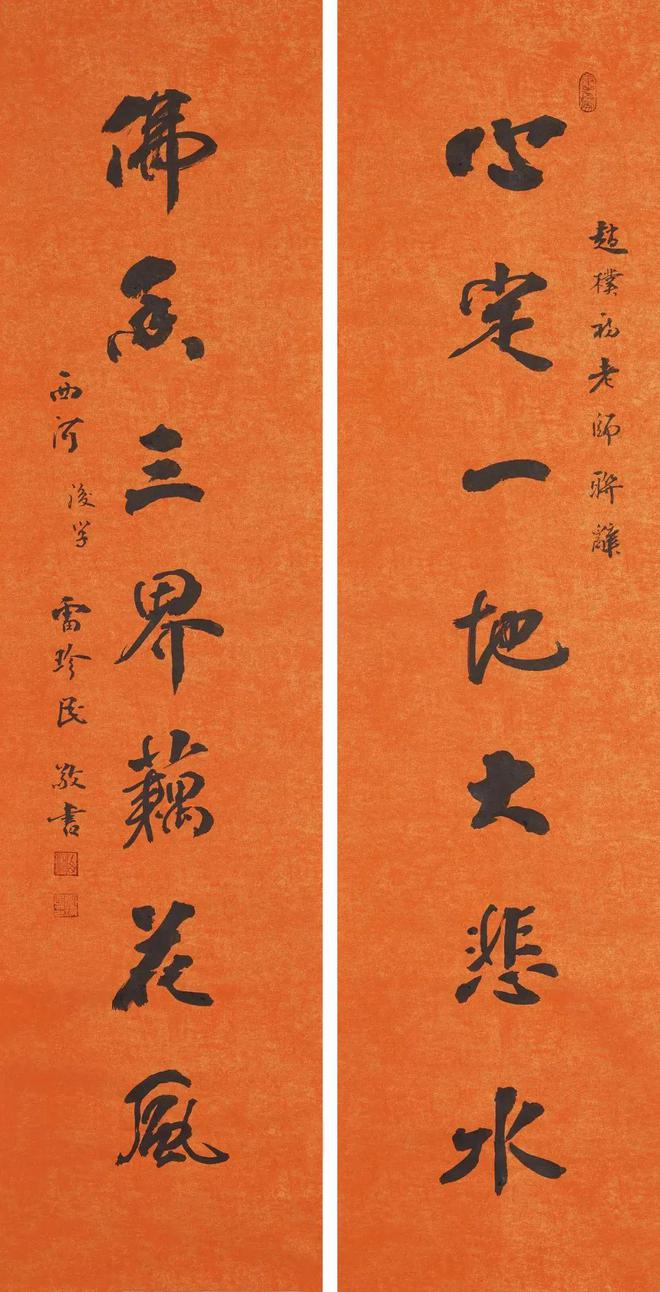 趙樸初老師聯辭
心定一地大悲水
佛香三界藕花風
西河後学雷珍民敬書